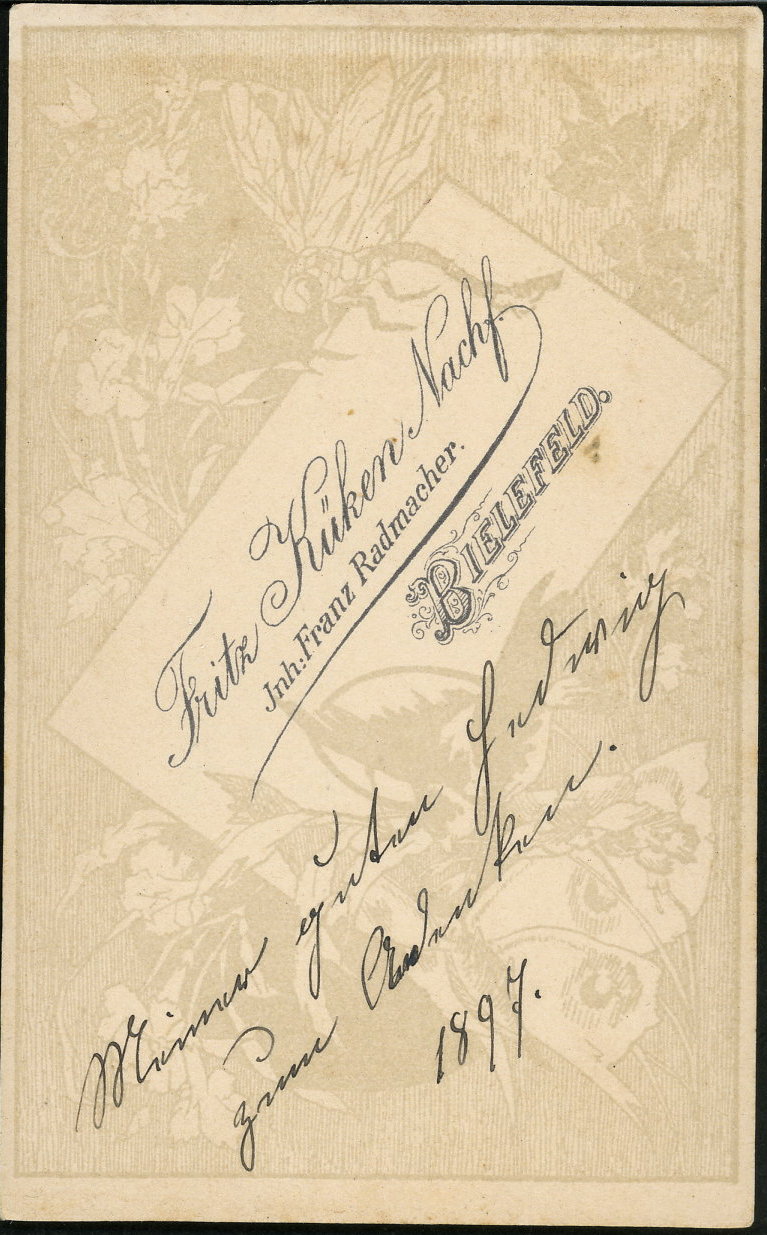 Fritz Küken Nachf.
Inh: Franz Radmacher.
BIELEFELD.
Meiner guten Hedwig
zum Andenken.
1897.